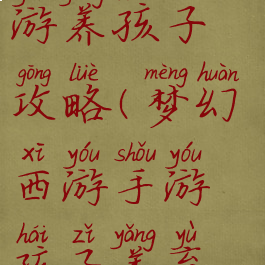 游养孩子
gōng lüè mèng huàn
攻略(梦幻
xī yóu shǒu yóu
西游手游
hái zǐ yǎng yù
孩子养育